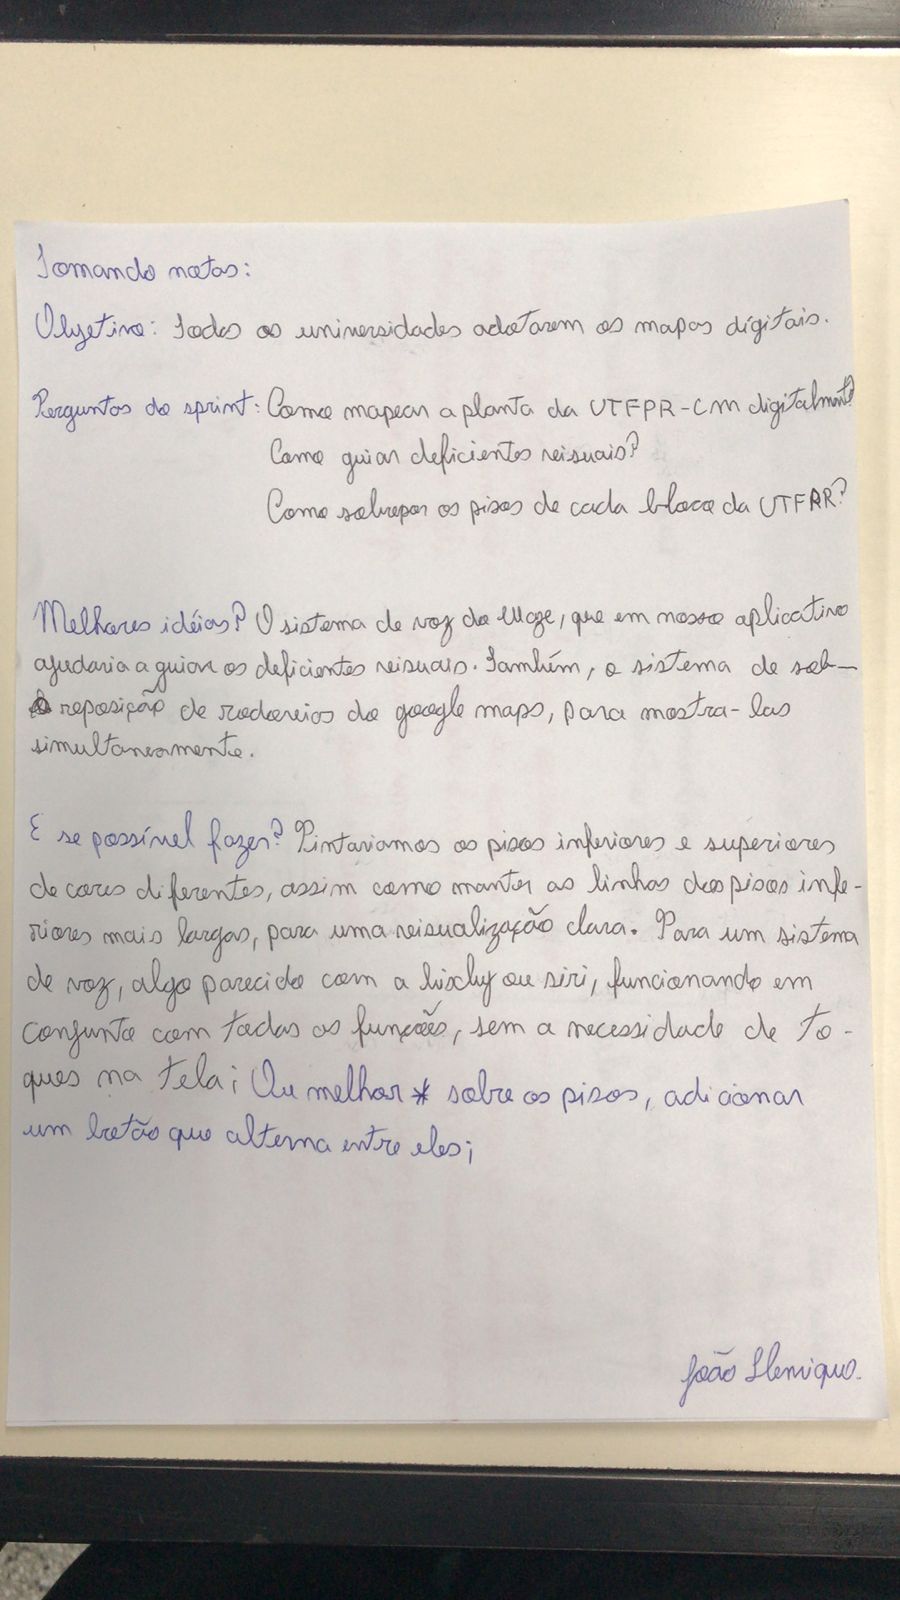 Tomando notas:
Objetivo: Todas as universidades adotarem os mapas digitais.
Perguntas do sprint: Como mapear a planta da UTFPR-CM digitalmente?
Como guiar deficientes visuais?
Como sobrepor os pisos de cada bloco da UTFPR?
Melhores idéias? O sistema de voz do Waze, que em nosso aplicativo
ajudaria a guiar os deficientes visuais. Também, o sistema de sob-
reposição de rodovias do google maps, para mostra-las
simultaneamente.
E se possível fazer? Pintariamos os pisos inferiores e superiores
de cores diferentes, assim como manter as linhas dos pisos infe-
riores mais largas, para uma visualização clara. Para um sistema
de voz, algo parecido com a bixby ou siri, funcionando em
conjunto com todas as funções, sem a necessidade de to-
ques na tela; Ou melhor * sobre os pisos, adicionar
um botão que alterna entre eles;
João Henrique.